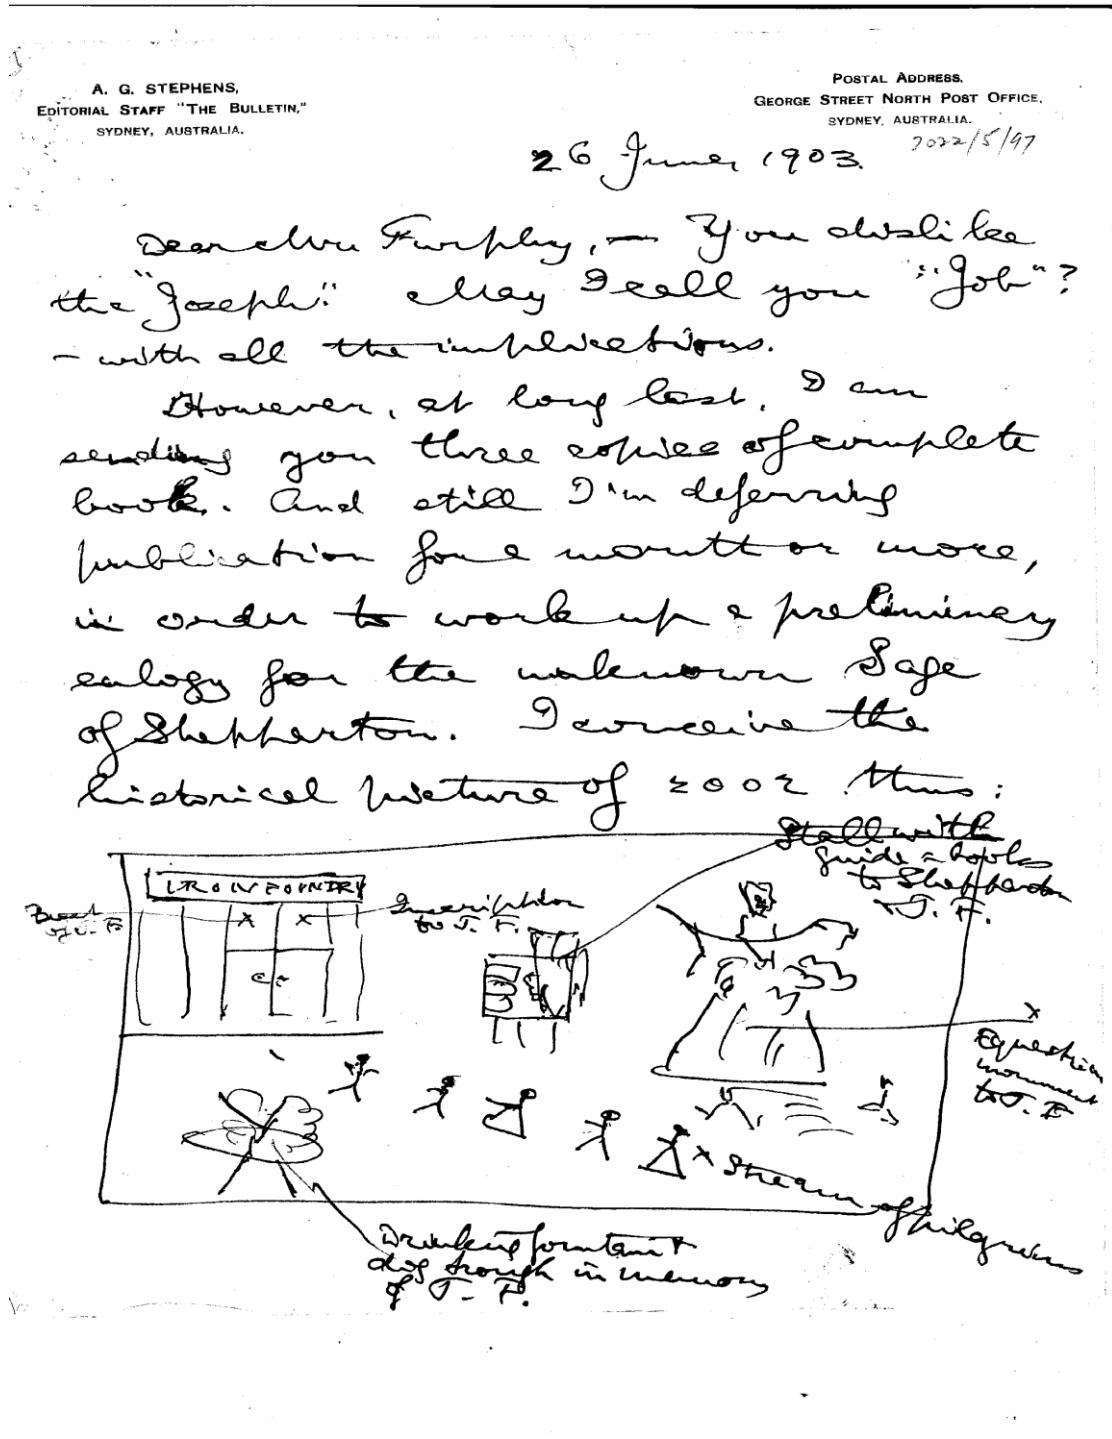 A. G. STEPHENS,
EDITORIAL STAFF "THE BULLETIN,"
SYDNEY, AUSTRALIA.
POSTAL ADDRESS.
GEORGE STREET NORTH POST OFFICE,
SYDNEY, AUSTRALIA.
2022/5/97
26 June, 1903.
Dear Mr Furphy, — You dislike
the "Joseph". May I call you "Job"?
– with all the implications.
However, at long last, I am
sending you three copies of complete
book. And still I'm deferring
publication for a month or more,
in order to work up a preliminary
eulogy for the unknown Sage
of Shepparton. I conceive the
historical picture of 2002 thus:
Stall with
guide-books
to Shepparton
J. F.
IRON FOUNDRY
Bust
of J. F.
Inscription
to J. F.
Equestrian
monument
to J. F
Stream of pilgrims
Drinking fountain &
dog trough in memory
of J. F.